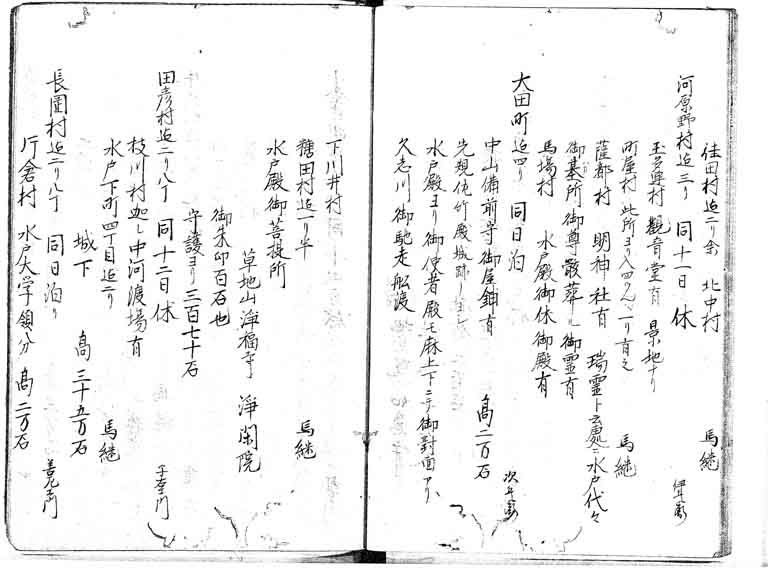 佳田村迠二リ余　北中村　馬継
河原野村迠三リ　同十一日休
玉る輿村　観音堂有　景地ナリ
町屋村　此所ヨリ入四けん、一リ有之　馬継
薩都村　明神社有　瑞霊ト云処ニ水戸代々
御墓所御尊骸葬ル御霊有
馬場村　水戸殿御休御殿有
大田町迠四リ　同日泊　次平衛
中山備前守御屋鋪有　高二万石
先規佐竹殿城跡ノ由
水戸殿ヨリ御使者殿モ麻上下ニテ御対面アリ、
久志川御馳走舩渡
下川井村　馬継
磨田村迠一リ半
水戸殿御菩提所
草地山浄福寺　浄閑院
御朱印百石也
守護ヨリ三百七十石
田彦村迠二リ八丁　同十二日休
枝川村迦し中河渡場有　馬継
水戸下町四丁目迠二リ
城下　高三十五万石
長園村迠二リ八丁　同日泊リ
片倉村　水戸大学領分　高二万石